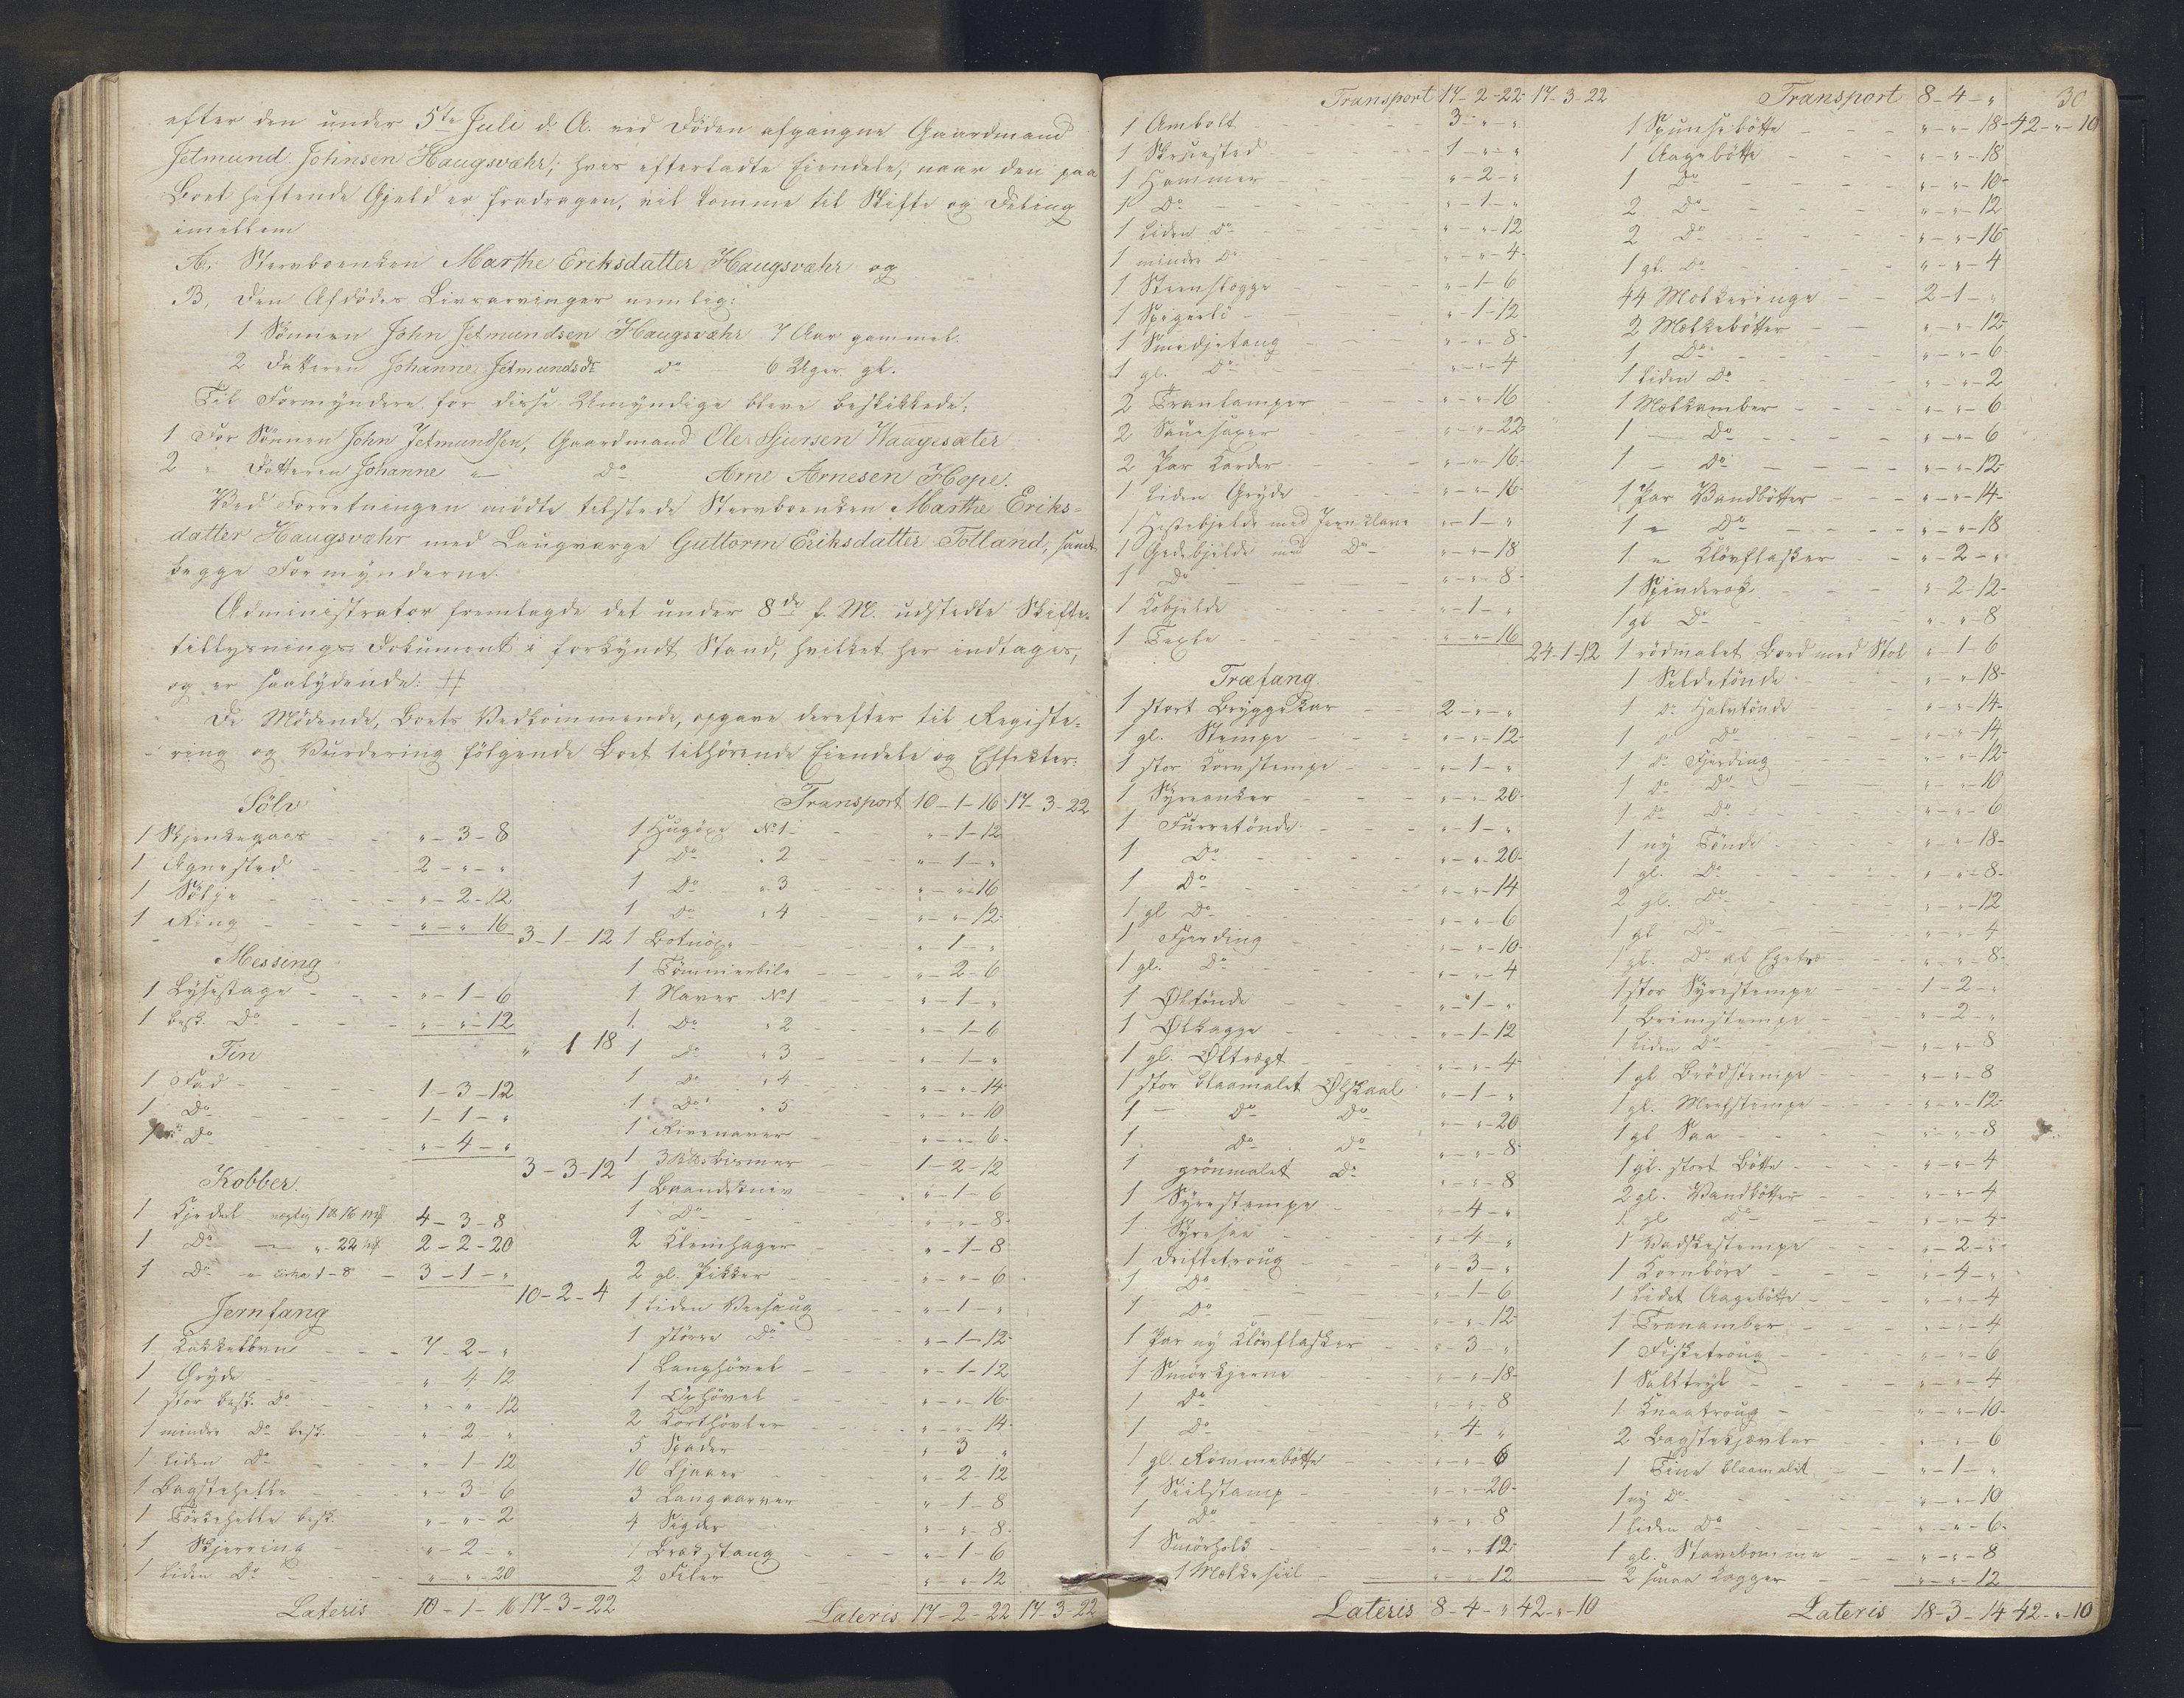 efter den under 5te Juli d. A. ved Døden afgangne Gaardmand
Jetmund Johnsen Haugsvæhr, hvis efterladte Eiendele, naar den paa
Boet heftende Gjæld er fradragen, vil komme til Skifte og Deling
imellem
A. Stervboenken Marthe Eriksdatter Haugsvæhr og
B. Den Afdødes Livsarvinger nemlig:
1 Sønnen John Jetmundsen Haugsvæhr 7 Aar gammel.
2 Datteren Johanne Jetmundsdr do 6 Uger gl.
Til Formyndere for disse Umyndige bleve beskikkede:
1 For Sønnen John Jetmundsen, Gaardmand Ole Sjursen Waagesæter
2 " Datteren Johanne " do Arne Arnesen Hope.
Ved Forretningen mødte tilstede Stervboenken Marthe Eriks-
datter Haugsvæhr med Laugværge Guttorm Eriksdatter Totland, samt
begge Formynderne.
Administrator fremlagde det under 8de f. M. udstedte Skifte-
tillysnings Dokument i forkyndt Stand, hvilket her indtages,
og er saalydende: #
De Mødende, Boets Vedkommende, opgave derefter til Registe-
ring og Vurdering følgende Boet tilhørende Eiendele og Effekter:
Sølv
1 Skjenkegaas " - 3 - 8
1 Agnested 2 - " - "
1 Sølje " - 2 - 12
1 Ring " - " 16 3 - 1 - 12
Messing
1 Lysestage " - 1 - 6
1 besk. Do " - " - 12 " 1 18
Tin
1 Fad 1 - 3 - 12
1 Do 1 - 1 - "
1 Do " - 4 - " 3 - 3 - 12
Kobber.
1 Kjedel vægtig 1 B 16 4 - 3 - 8
1 Do " - 22 2 - 2 - 20
1 Do " cirka 1 - 8 3 - 1 - " 10 - 2 - 4
Jernfang
1 Kakkelovn 7 - 2 - "
1 Gryde " 4 12
1 stor besk. Do " - " - 12
1 mindre Do besk. " - 2 - "
1 liden Do " - 1 - 12
1 Bagstehelle " - 3 - 6
1 Tørkehelle besk. " - " - 2
1 Skjerring " - 2 - "
1 liden Do " - " - 20
Lateris 10 - 1 - 16 17 - 3 - 22
Transport 10 - 1 - 16 17 - 3 - 22
1 Hugøxe No 1 " - 1 - 12
1 Do " 2 " - 1 - "
1 Do " 3 " - " - 16
1 Do " 4 " - " - 12
1 Bolnøxe " - 1 - "
1 Tømmerbile " - 2 - 6
1 Naver No 1 " - 1 - "
1 Do " 2 " - 1 - 6
1 Do " 3 " - 1 - "
1 Do " 4 " - " - 14
1 Do " 5 " - " - 10
1 Rivenaver " - " - 6
1 3 Bs bismer 1 - 2 - 12
1 Baandekniv " - 1 - 6
1 Do " - " - 8
2 Kleinhager " - 1 - 8
2 gl. Pikker " - " - 6
1 liden Veesaug " - 1 - "
1 større Do " - 1 - 12
1 Langhøvel " - 1 - 12
1 Oxhøvel " - " - 16
2 Korthøvler " - " - 14
5 Spader " - 3 "
10 Ljaaer " - 2 - 12
3 Langaarver " - 1 - 8
4 Sigder " - " - 8
1 Brækstang " - 1 - 6
2 Filer " - " - 12
Lateris 17 - 2 - 22 17 - 3 - 22
Transport 17 - 2 - 22 17 - 3 - 22
1 Ambolt 3 - " - "
1 Skruested 1 - " - "
1 Hammer " - 2 - "
1 Do " - 1 - "
1 liden Do " - " - 12
1 mindre Do " - " - 4
1 Steenslægge " - 1 - 6
1 " - 1 - 12
1 Smedjetang " - " - 8
1 gl. Do " - " - 4
2 Tranlamper " - " - 16
2 Sauesaxer " - " - 22
2 Par Karder " - " - 16
1 liden Gryde " - " - 16
1 Hestebjelde med Jernklave " - 1 - "
1 Gedebjelde med Do " - " - 18
1 Do " - " - 8
1 Kobjelde " - 1 - "
1 Texle " - " - 16
24 - 1 - 12
Træfang.
1 stort Bryggekar 2 - " - "
1 gl. Stampe " - " - 12
1 stor Kornstampe " - 1 - "
1 Syreanker " - " - 20
1 Furretønde " - 1 - "
1 Do " - " - 20
1 Do " - " - 14
1 gl Do " - " - 6
1 Fjerding " - " - 10
1 gl. Do " - " - 4
1 Øltønde " - 1 - "
1 Ølkagge " - 1 - 12
1 gl. Øltragt " - " - 4
1 stor blaamalet Ølskaal " - 1 - "
1 Do Do " - " - 20
1 Do Do " - " - 8
1 grønmalet Do " - " - 8
1 Syrestampe " - 4 - "
1 Syresaa " - 4 - "
1 Driftetroug " - 3 - "
1 Do " - 1 - 6
1 Do " - " - 12
1 Par ny Kløvflasker " - 3 - "
1 Smørkjerne " - " - 18
1 Do " - " - 8
1 Do " - 4 - "
1 gl. Rømmebøtte " - " - 6
1 Siilstamp " - " - 20
1 Do " - " - 8
1 Smørholk " - " - 12
1 Mælkesiil " - " - 12
Lateris 8 - 4 - " 42 - " - 10
Transport 8 - 4 - " 30
1 Spunsebøtte " - " - 18 42 - " - 10
1 Aagebøtte " - " - 18
1 Do " - " - 10
2 Do " - " - 12
2 Do " - " - 16
1 gl. Do " - " - 4
44 Mælkeringe 2 - 1 - "
2 Mælkebøtter " - " - 12
1 Do " - " - 6
1 liden Do " - " - 2
1 Molkamber " - " - 6
1 Do " - " - 6
1 Do " - " - 12
1 Par Vandbøtter " - " - 14
1 " Do " - " - 18
1 " Kløvflasker " - 2 - "
1 Spinderok " - 2 - 12
1 gl Do " - " - 8
1 rødmalet Bord med Stol " - 1 - 6
1 Sildetønde " - " - 18
1 do Halvtønde " - " - 14
1 " Do " - " - 14
1 do Fjerding " - " - 12
1 do Do " - " - 10
1 do Do " - " - 6
1 ny Tønde " - " - 18
1 gl. Do " - " - 8
2 gl. Do " - " - 12
1 gl Do " - " - 4
1 gl. Do af Egetræ " - " - 8
1 stor Syrestampe 1 - 2 - "
1 Brimstampe " - 2 - "
1 liden Do " - " - 8
1 gl Brødstampe " - " - 8
1 gl. Meelstampe " - " - 12
1 gl Saa " - " - 8
1 gl. stort Bøtte " - " - 4
2 gl. Vandbøtter " - " - 4
1 gl Do " - " - 4
1 Vadskestampe " - 2 - "
1 Kornbøre " - 4 - "
1 lidet Aagebøtte " - " - 4
1 Tranamber " - " - 4
1 Fisketroug " - " - 6
1 Salttryk " - " - 4
1 Knaatroug " - " - 10
2 Bagstekjævler " - " - 6
1 Tine blaamalet " - 1 - "
1 ny Do " - " - 10
1 liden Do " - " - 6
1 gl. Stavebomme " - " - 8
2 smaa Kagger " - " - 12
Lateris 18 - 3 - 14 42 - " - 10